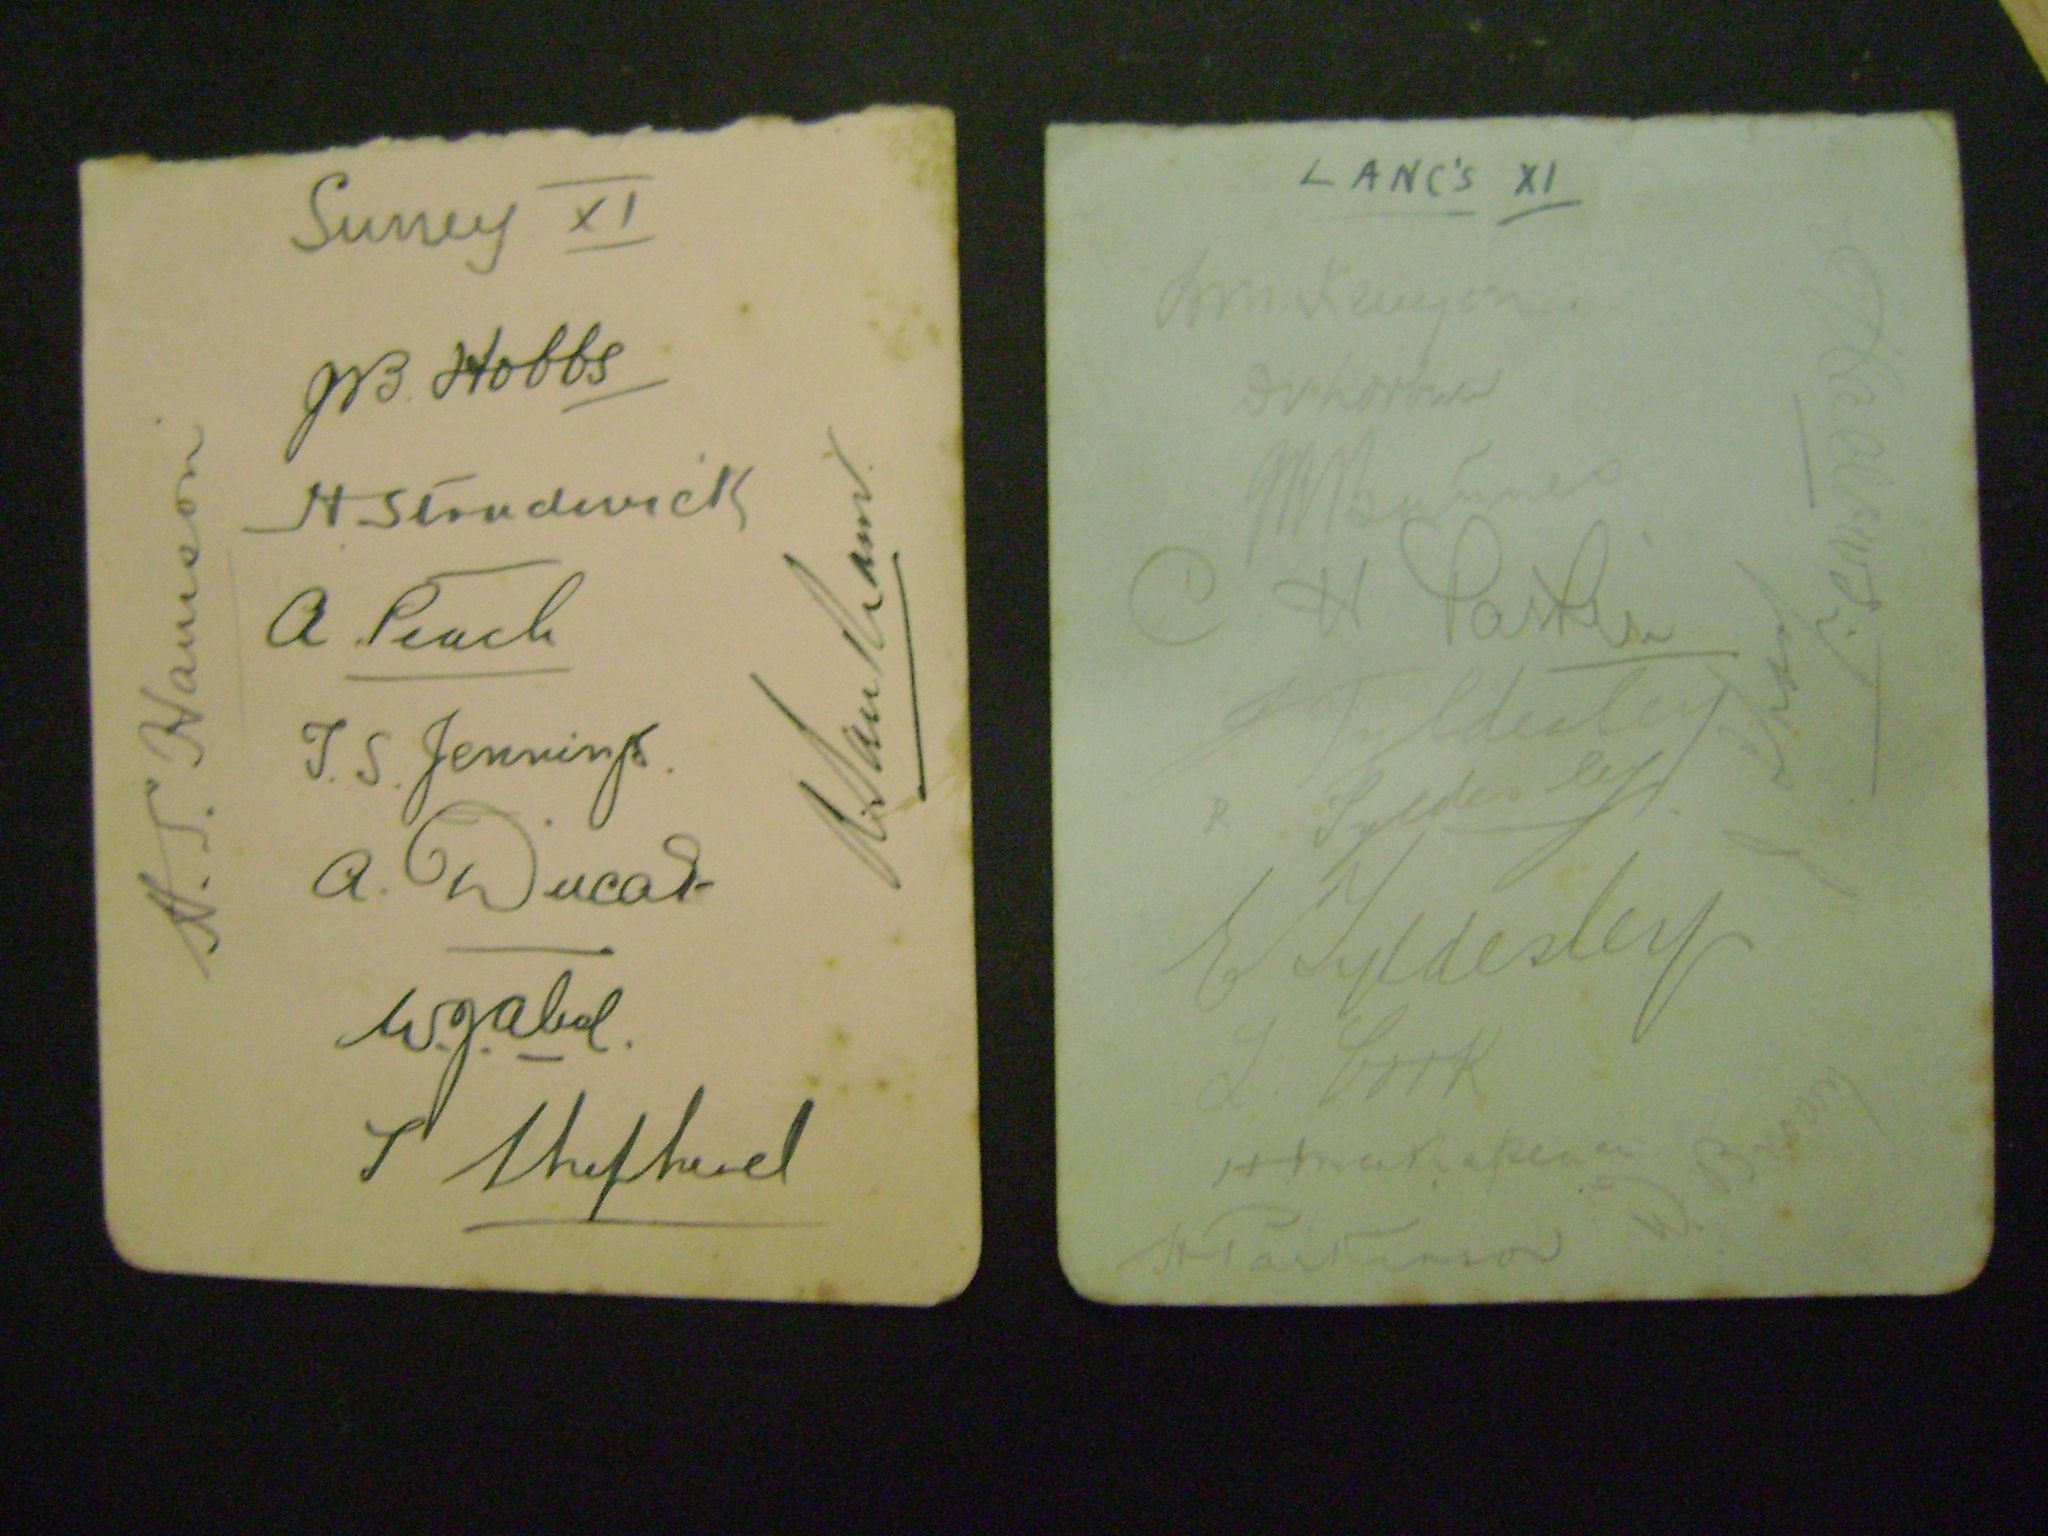 Surrey XI
J B. Hobbs
H Strudwick
A. Peach
T. S. Jennings.
A. Ducat
W. J. Abel.
T Shepherd
H. S. Harrison
A. Sandham.
LANC'S XI
J R Barnes
C H Parkin
J Tyldesley
R Tyldesley
E Tyldesley
L. Cook
H Makepeace
H Parkinson